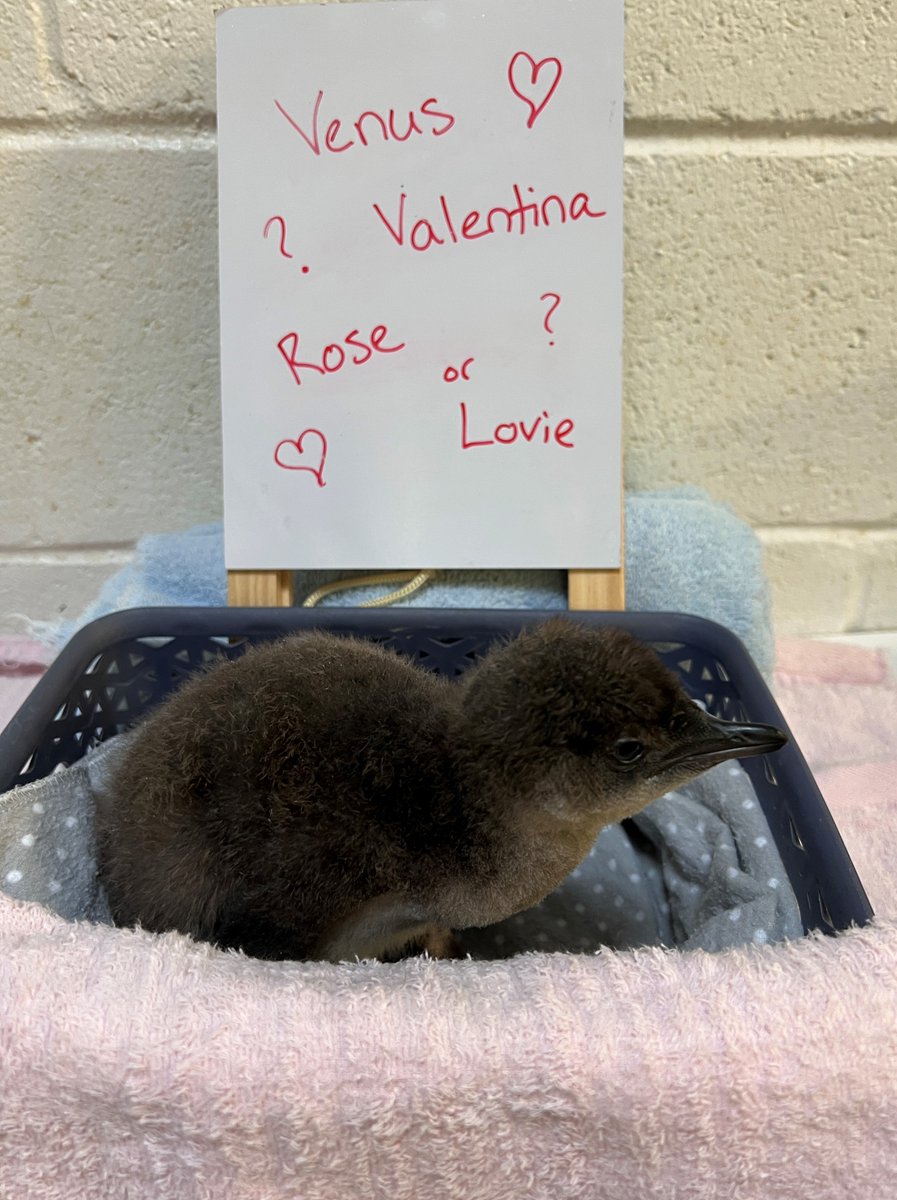 Venus
? Valentina
Rose or ?
Lovie